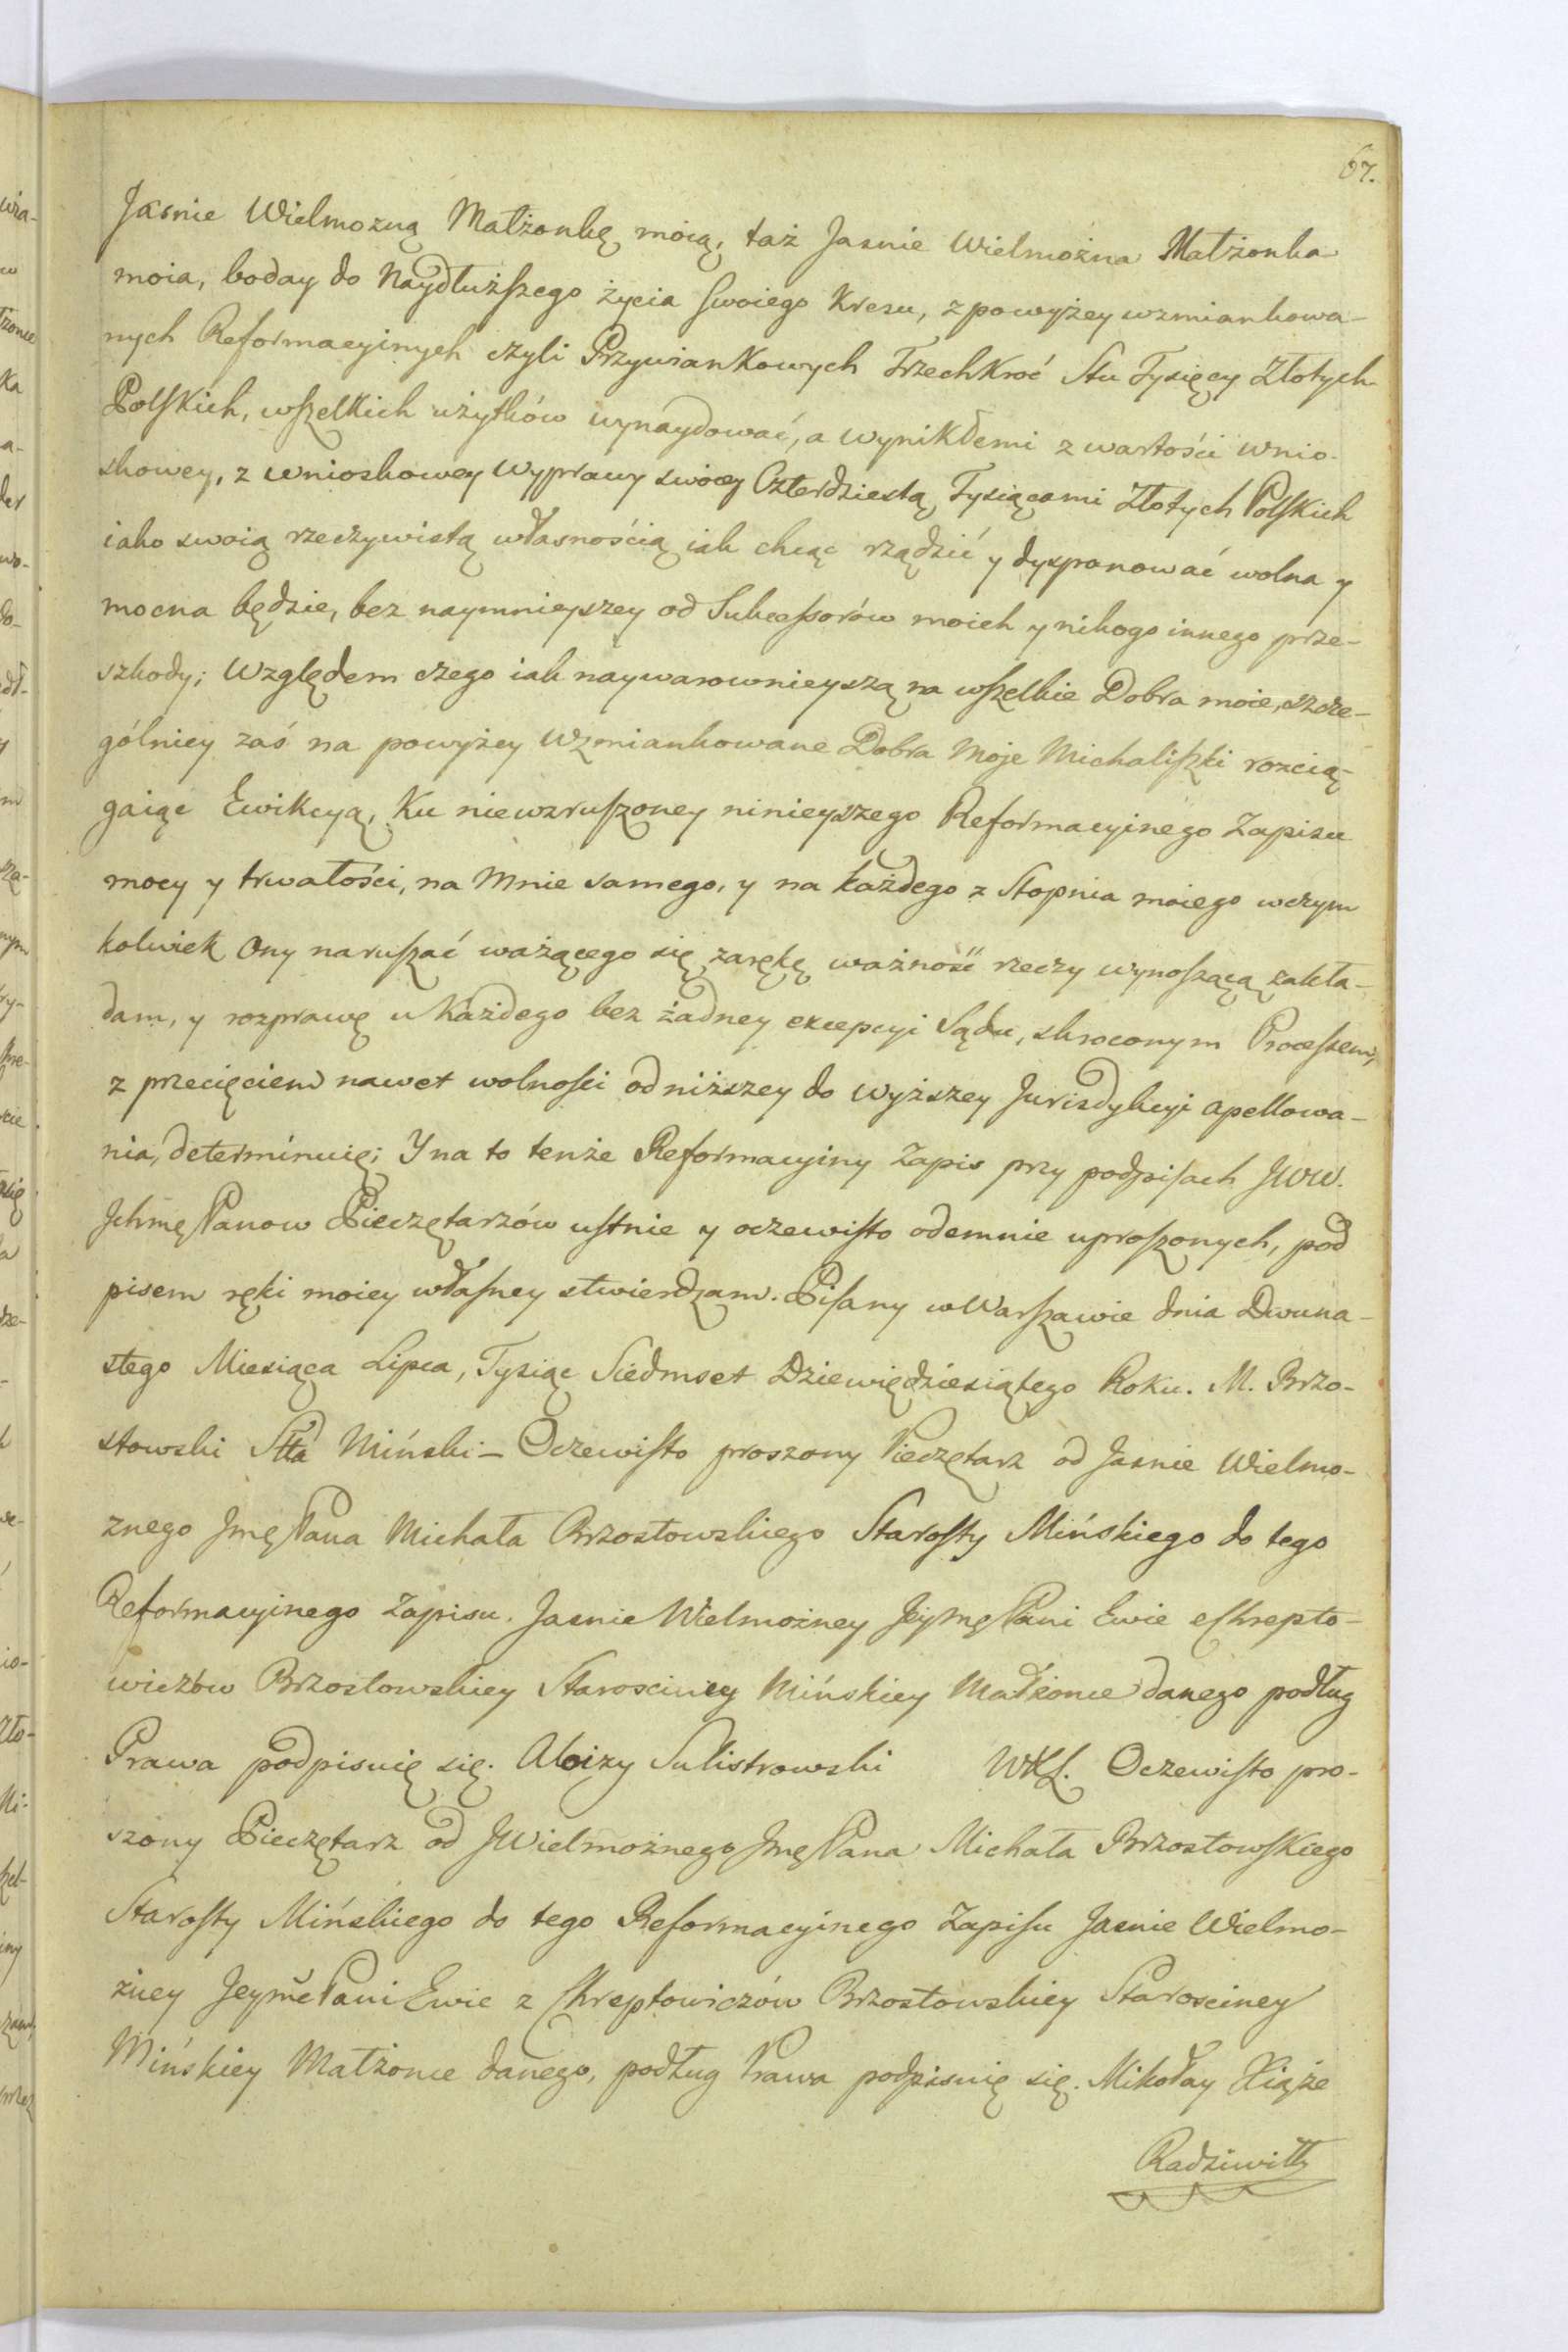 67.
Jasnie Wielmozną Małżonkę moią, taż Jasnie Wielmożna Małżonka
moia, boday do Naydłuższego życia swoiego Kresu, z powyżey wzmiankowa-
nych Reformacyinych czyli Przywiankowych Trzechkroć Stu Tysięcy Złotych
Polskich, wszelkich użytków wynaydować, a wynikłemi z wartości wnio-
skowey, z wnioskowey wyprawy swoiey Czterdziestą Tysiącami Złotych Polskich
iako swoią rzeczywistą własnością iak chcąc rządzić y dysponować wolna y
mocna będzie, bez naymnieyszey od Sukcessorów moich y nikogo innego prze-
szkody; Względem czego iak naywarownieyszą na wszelkie Dobra moie, szcze-
gólniey zaś na powyżey wzmiankowane Dobra Moje Michaliszki rozcią-
gaiąc Ewikcyą, Ku niewzruszoney ninieyszego Reformacyinego Zapisu
mocy y trwałości, na Mnie samego, y na każdego z Stopnia moiego wczym
kolwiek Ony naruszać ważącego się zarękę ważność rzeczy wynoszącą zakła-
dam, y rozprawę u Każdego bez żadney excepcyi Sądu, skroconym Processem,
z przecięciem nawet wolności od niższey do wyższey Jurisdykcyi apellowa-
nia, determinuię; Y na to tenże Reformacyiny Zapis przy podpisach JWW.
Ichmę Panow Pieczętarzów ustnie y oczewisto odemnie uproszonych, pod
pisem ręki moiey własney stwierdzam. Pisany w Warszawie dnia Dwuna-
stego Miesiąca Lipca, Tysiąc Siedmset Dziewiędziesiątego Roku. M. Brzo-
stowski Stta Miński – Oczewisto proszony Pieczętarz od Jasnie Wielmo-
znego Jmę Pana Michała Brzostowskiego Starosty Mińskiego do tego
Reformacyinego Zapisu. Jasnie Wielmożney Jeymę Pani Ewie z Chrepto-
wiczów Brzostowskiey Starosciney Mińskiey Małżonce danego podług
Prawa podpisuię się. Aloizy Sulistrowski WXL. Oczewisto pro-
szony Pieczętarz od JWielmożnego Jmę Pana Michała Brzostowskiego
Starosty Mińskiego do tego Reformacyinego Zapisu Jasnie Wielmo-
żney Jeymę Pani Ewie z Chreptowiczów Brzostowskiey Starosciney
Mińskiey Małżonce danego, podług Prawa podpisuię się. Mikołay Xiąże
Radziwiłł